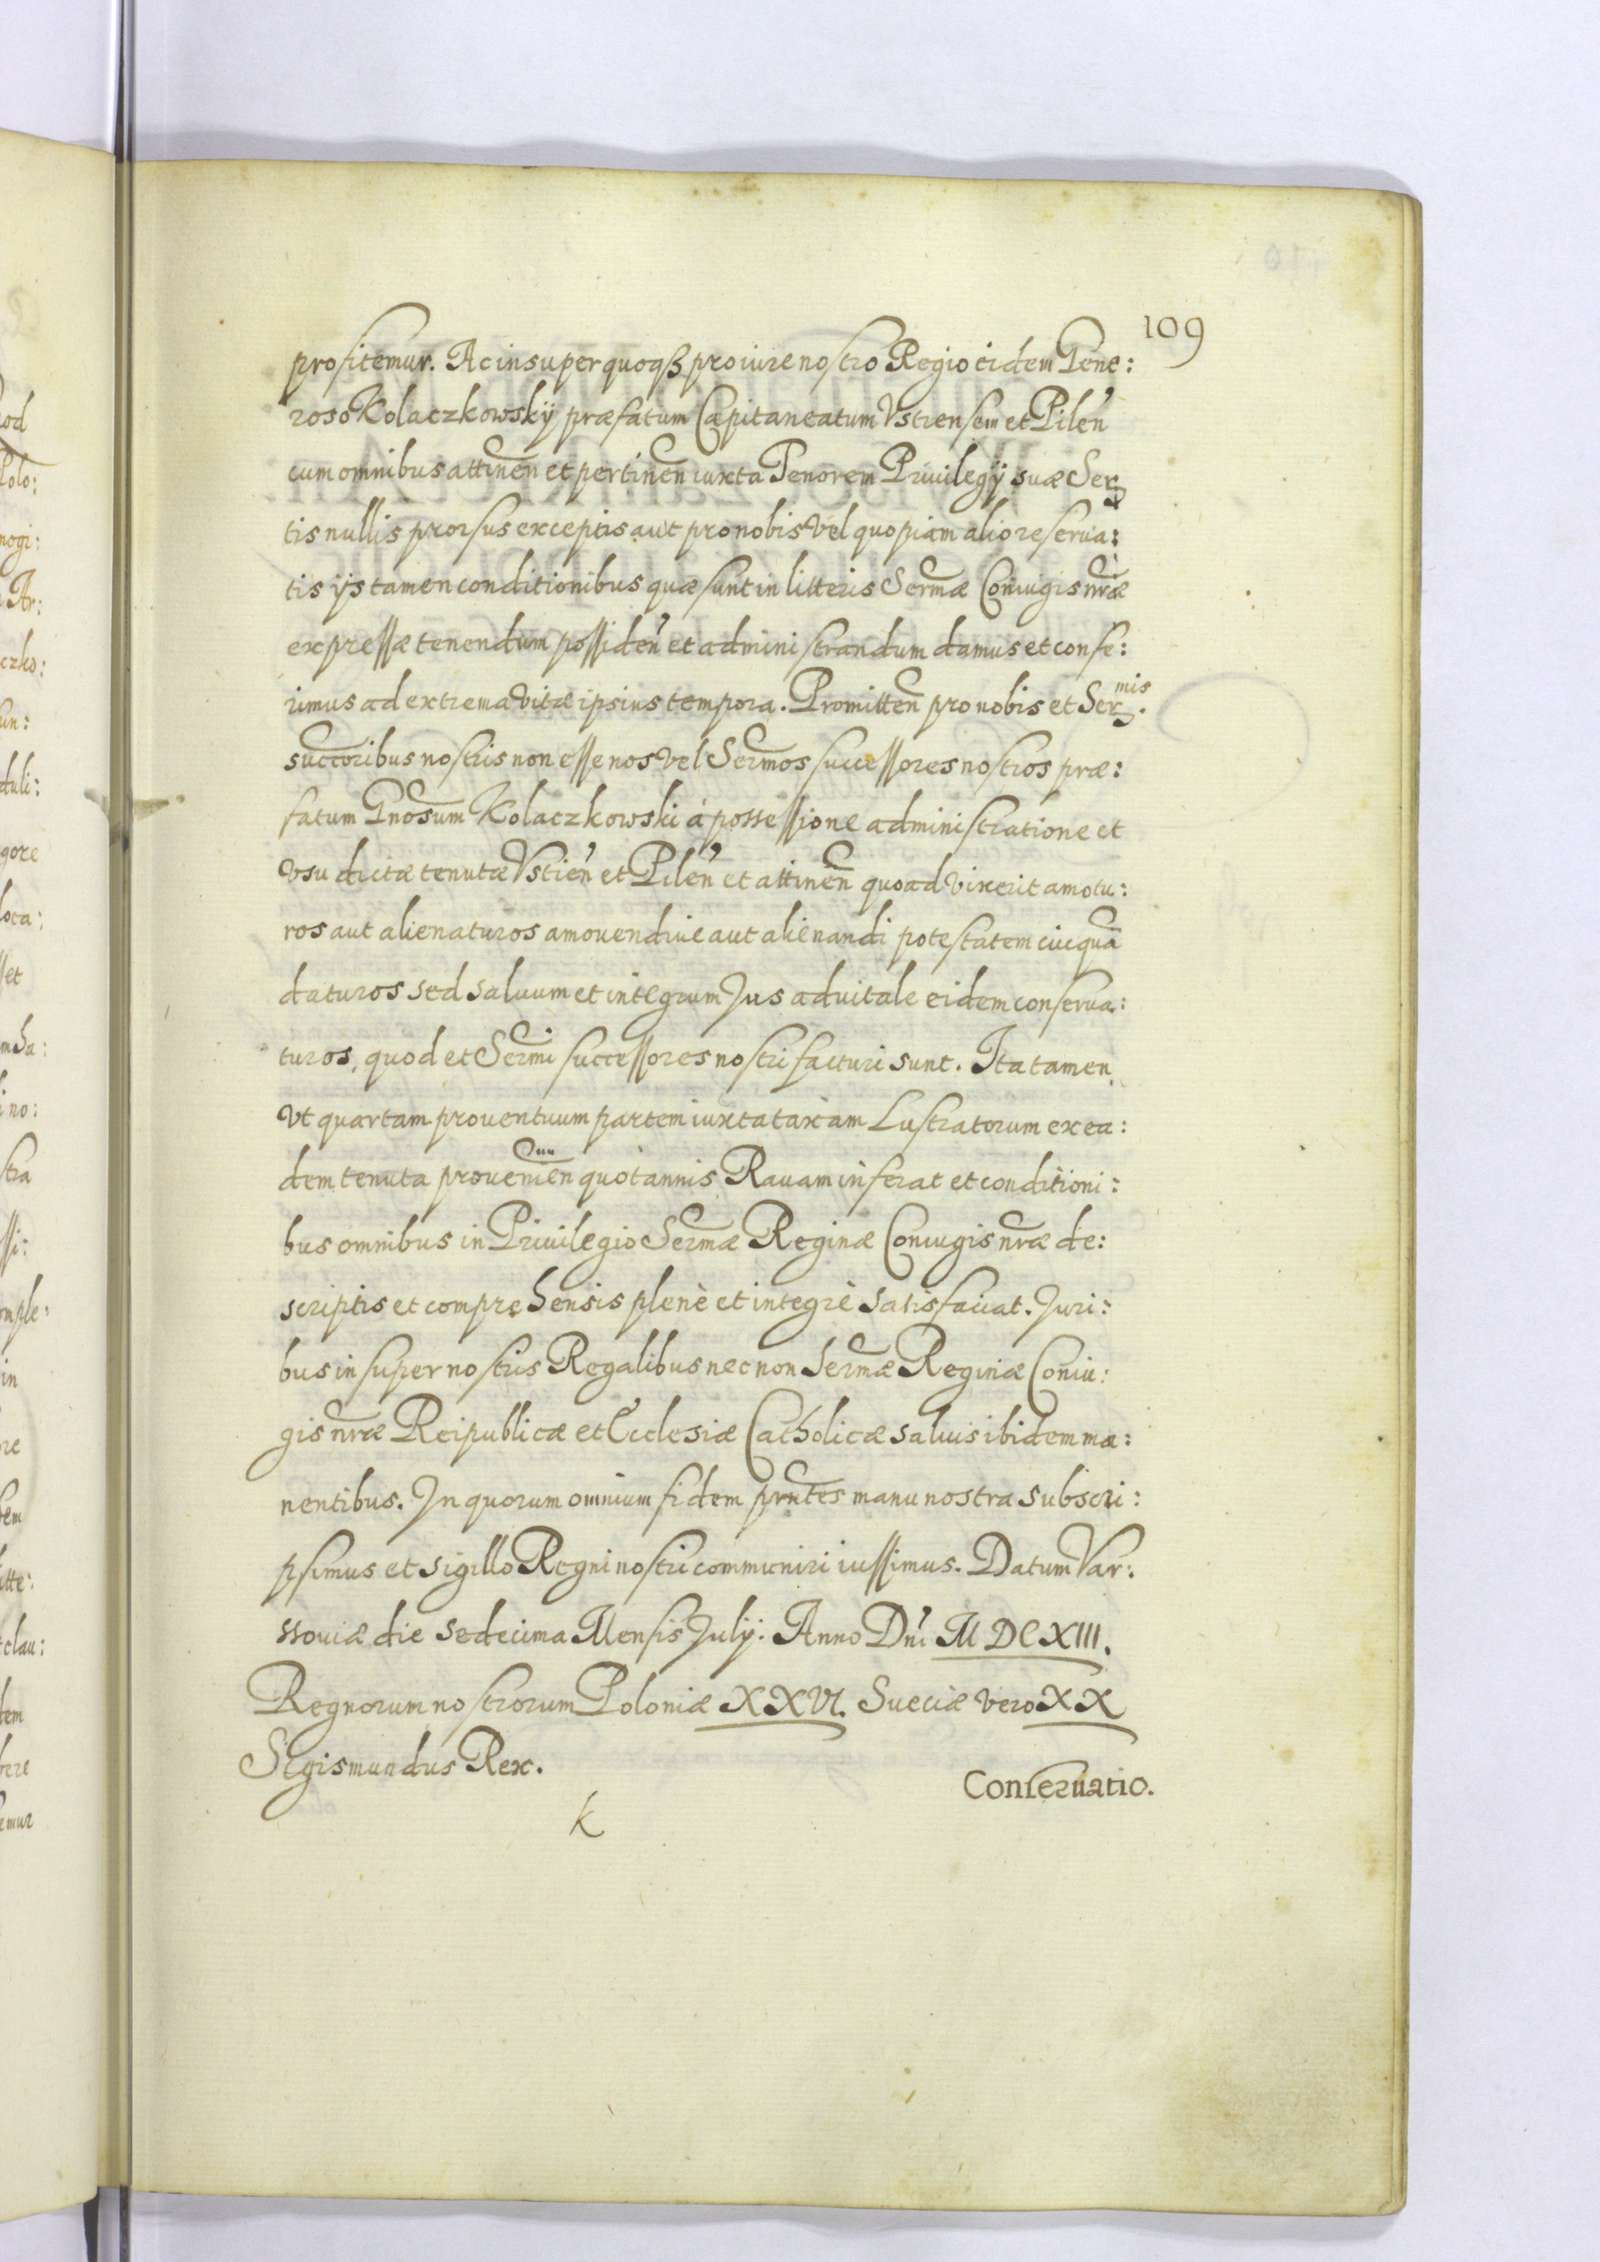 109
profitemur. Ac insuper quoqß pro iure nostro Regio eidem Gene:
roso Kolaczkowskÿ præfatum Capitaneatum Vstiensem et Pilen̄
cum omnibus attinen̄ et pertinen̄ iuxta Tenorem Priuilegÿ suæ Ser
tis nullis prorsus exceptis aut pro nobis vel quopiam alio reserua:
tis ÿs tamen conditionibus quæ sunt in litteris Sermæ Coniugis nr̄æ
expressæ tenendum possiden̄ et administrandum damus et confe:
rimus ad extrema vitæ ipsius tempora. Promitten̄ pro nobis et Ser mis.
succoribus nostris non esse nos vel Sermos successores nostros præ:
fatum Gnosum Kolaczkowski à possessione administratione et
vsu dictæ tenutæ Vstien̄ et Pilen̄ et attinen̄ quoad vixerit amotu:
ros aut alienaturos amouendiue aut alienandi potestatem cuiquā
daturos sed saluum et integrum Jus aduitale eidem conserua:
turos, quod et Sermi successores nostri facturi sunt. Ita tamen
vt quartam prouentuum partem iuxta taxam Lustratorum ex ea:
dem tenuta prouenien̄ quotannis Rauam inferat et conditioni:
bus omnibus in Priuilegio Sermæ Reginæ Coniugis nr̄æ de:
scriptis et compręhensis plenè et integrè satisfaciat. Juri:
bus insuper nostris Regalibus nec non Sermæ Reginæ Coniu:
gis nr̄æ Reipublicæ et Ecclesiæ Catholicæ saluis ibidem ma:
nentibus. In quorum omnium fidem prn̄tes manu nostra subscri:
psimus et sigillo Regni nostri communiri iussimus. Datum Var:
ssouiæ die sedecima Mensis Julÿ. Anno Dnī M DC XIII.
Regnorum nostrorum Poloniæ XXVI. Sueciæ vero XX
Sigismundus Rex.
Conseruatio.
k